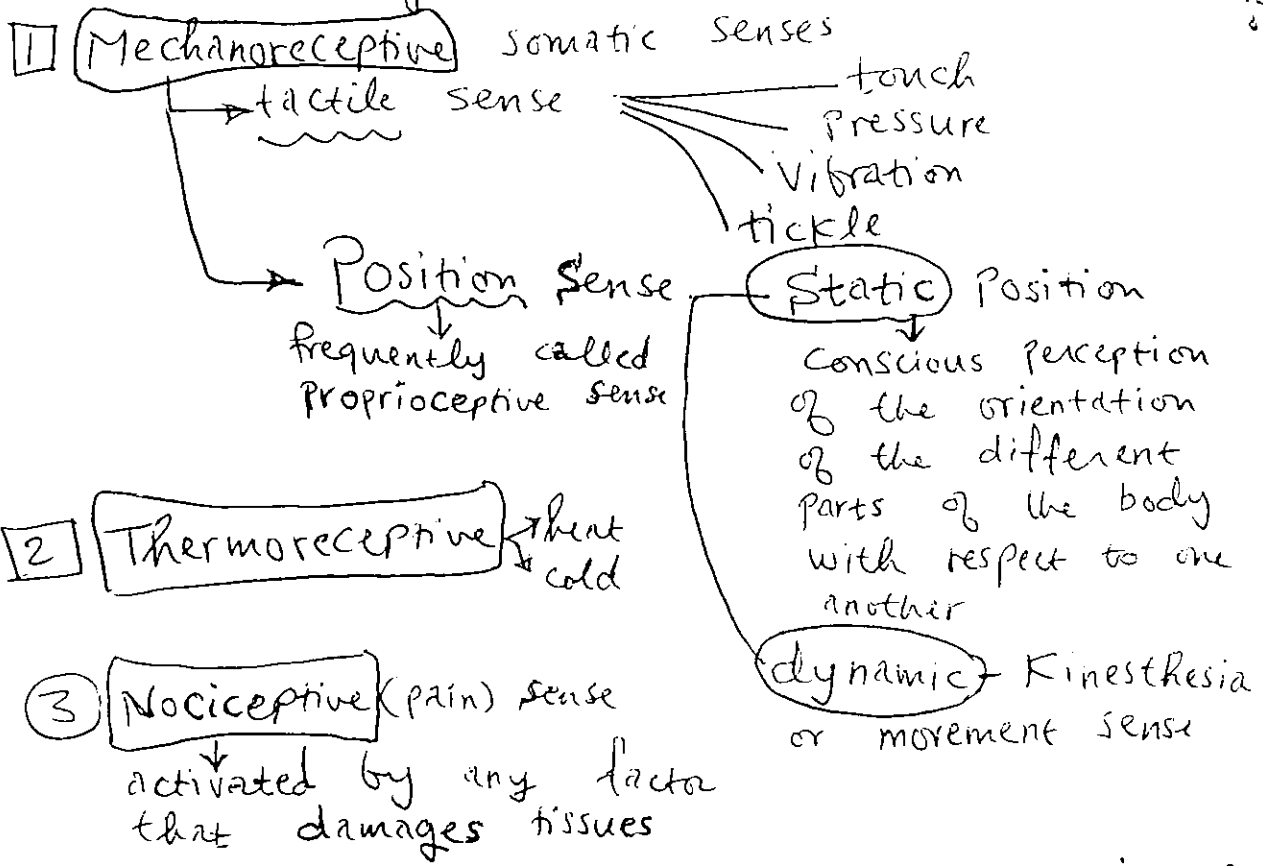 1 Mechanoreceptive somatic senses
tactile sense
touch
pressure
vibration
tickle
Position Sense
frequently called
proprioceptive sense
Static Position
conscious perception
of the orientation
of the different
parts of the body
with respect to one
another
dynamic - Kinesthesia
or movement sense
2 Thermoreceptive
heat
cold
3 Nociceptive (pain) sense
activated by any factor
that damages tissues